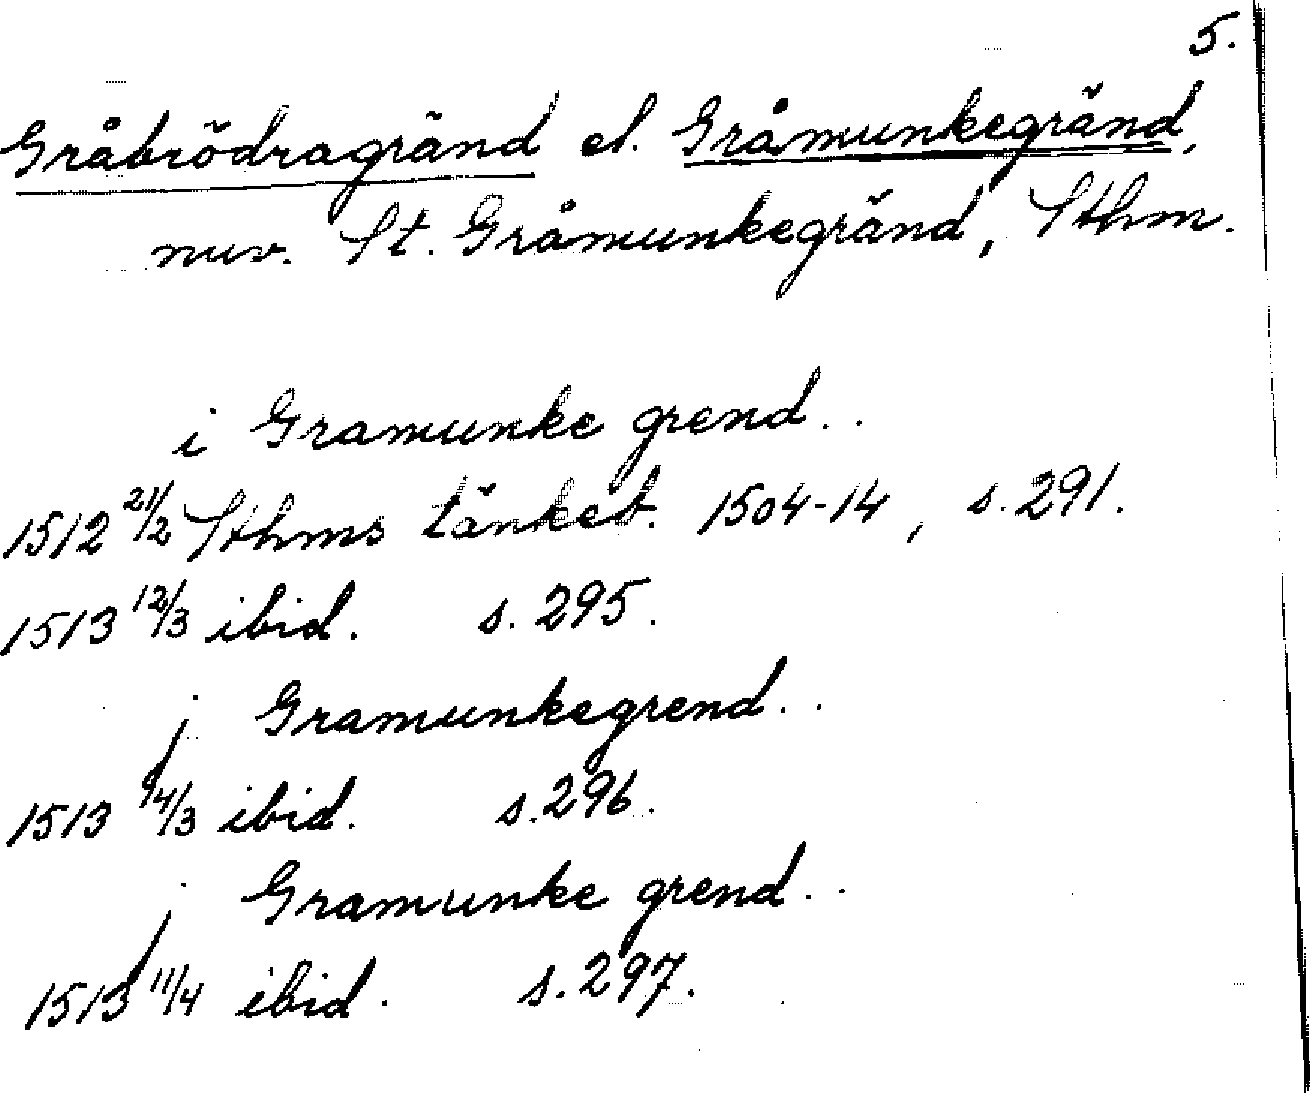 5.
Gråbrödragränd el. Gråmunkegränd,
nuv. St. Gråmunkegränd, Sthm.
i Gramunke grend..
1512 21/2 Sthms tänkeb. 1504-14, s. 291.
1513 12/3 ibid. s. 295.
j Gramunkegrend..
1513 14/3 ibid. s. 296.
j Gramunke grend..
1513 11/4 ibid. s. 297.